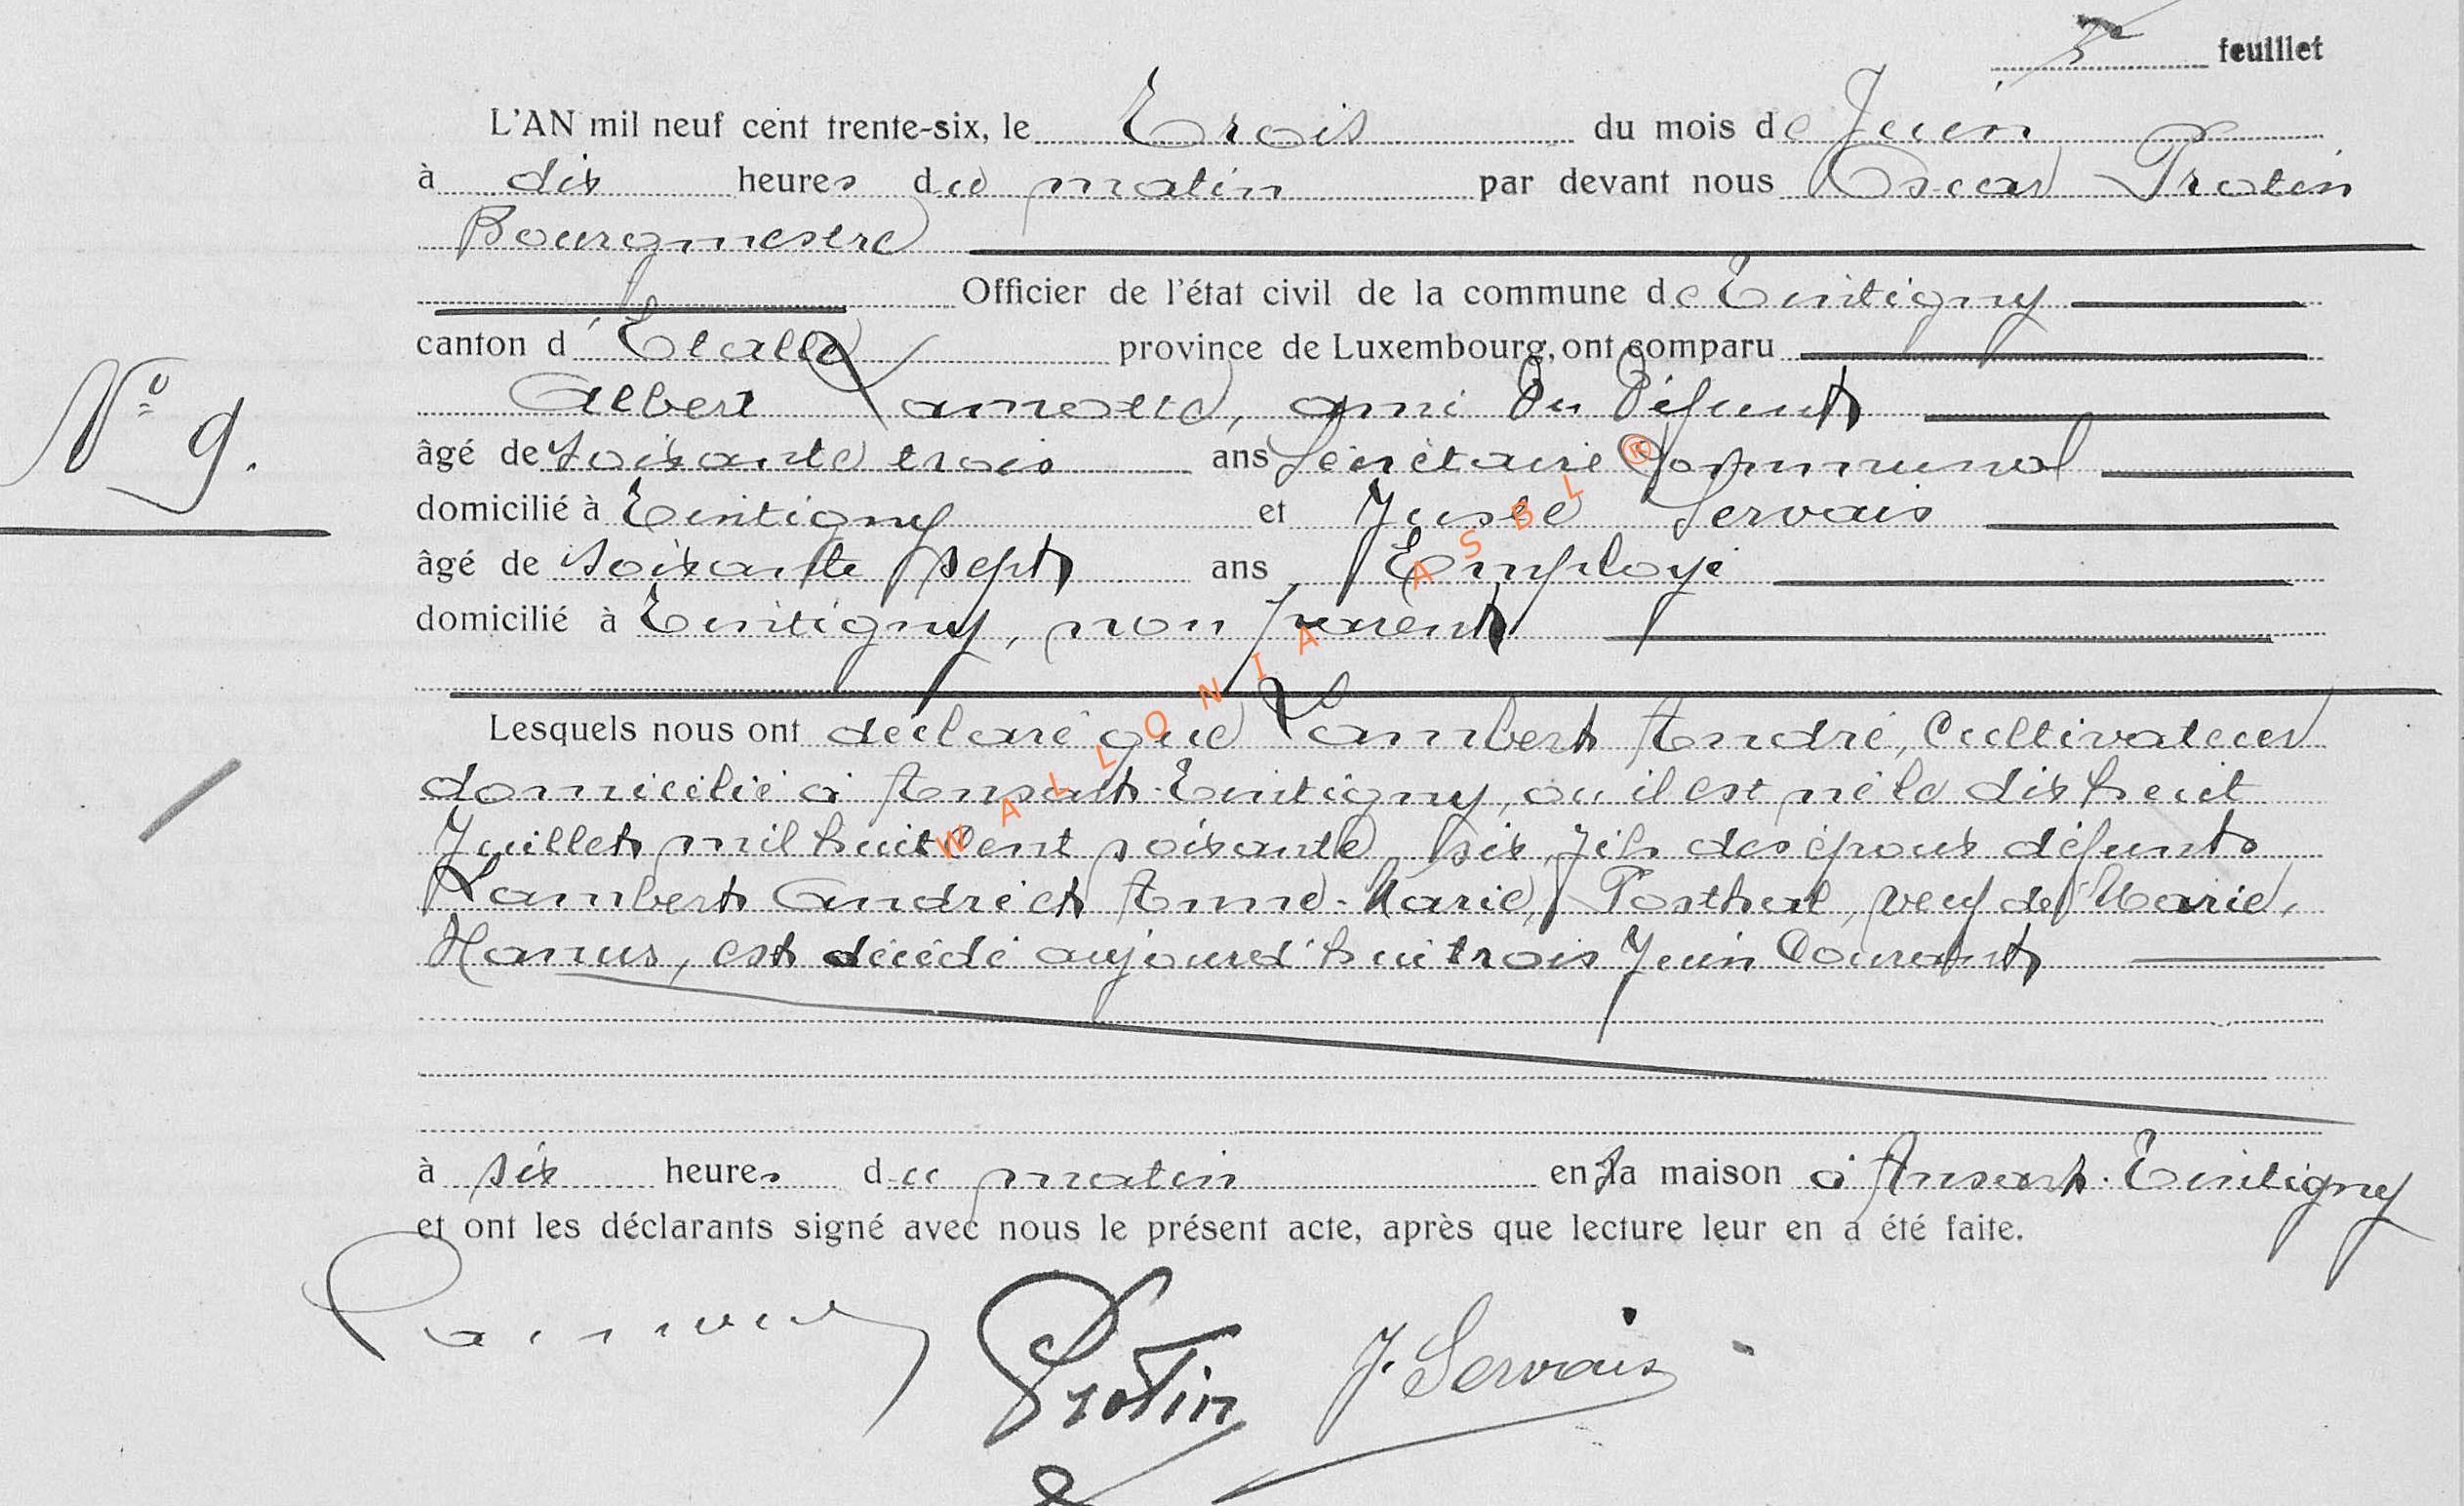 5 feuillet
L'AN mil neuf cent trente-six, le Trois du mois de Juin
à dix heures du matin par devant nous Oscar Protin
Bourgmestre
Officier de l'état civil de la commune de Tintigny
canton d'Etalle province de Luxembourg, ont comparu
Albert Lamotte, ami du défunt
N° 9.
âgé de soixante trois ans Secrétaire Communal
domicilié à Tintigny et Juste Servais
âgé de soixante sept ans, Employé
domicilié à Tintigny, non parent
Lesquels nous ont déclaré que Lambert André, Cultivateur
domicilié à Ansart-Tintigny, où il est né le dix huit
Juillet mil huit cent soixante six, fils des époux défunts
Lambert André et Anne-Marie, Posthal, veuf de Marie,
Hanus, est décédé aujourd'hui trois Juin Courant
à six heures du matin en sa maison à Ansart-Tintigny
et ont les déclarants signé avec nous le présent acte, après que lecture leur en a été faite.
Protin J. Servais
WALLONIA ASBL ®